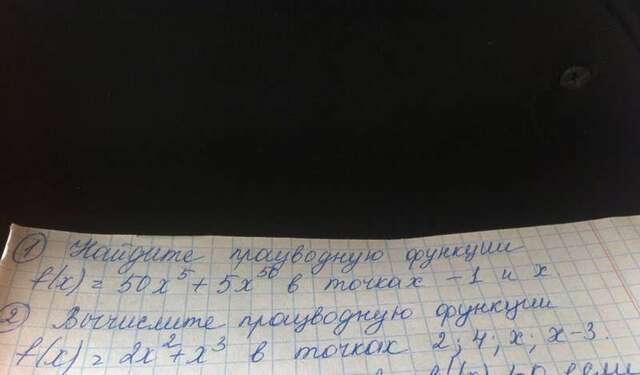 ① Найдите производную функции
f(x) = 50x⁵ + 5x⁵⁰ в точках -1 и x
② Вычислите производную функции
f(x) = 2x² + x³ в точках 2; 4; x; x-3.